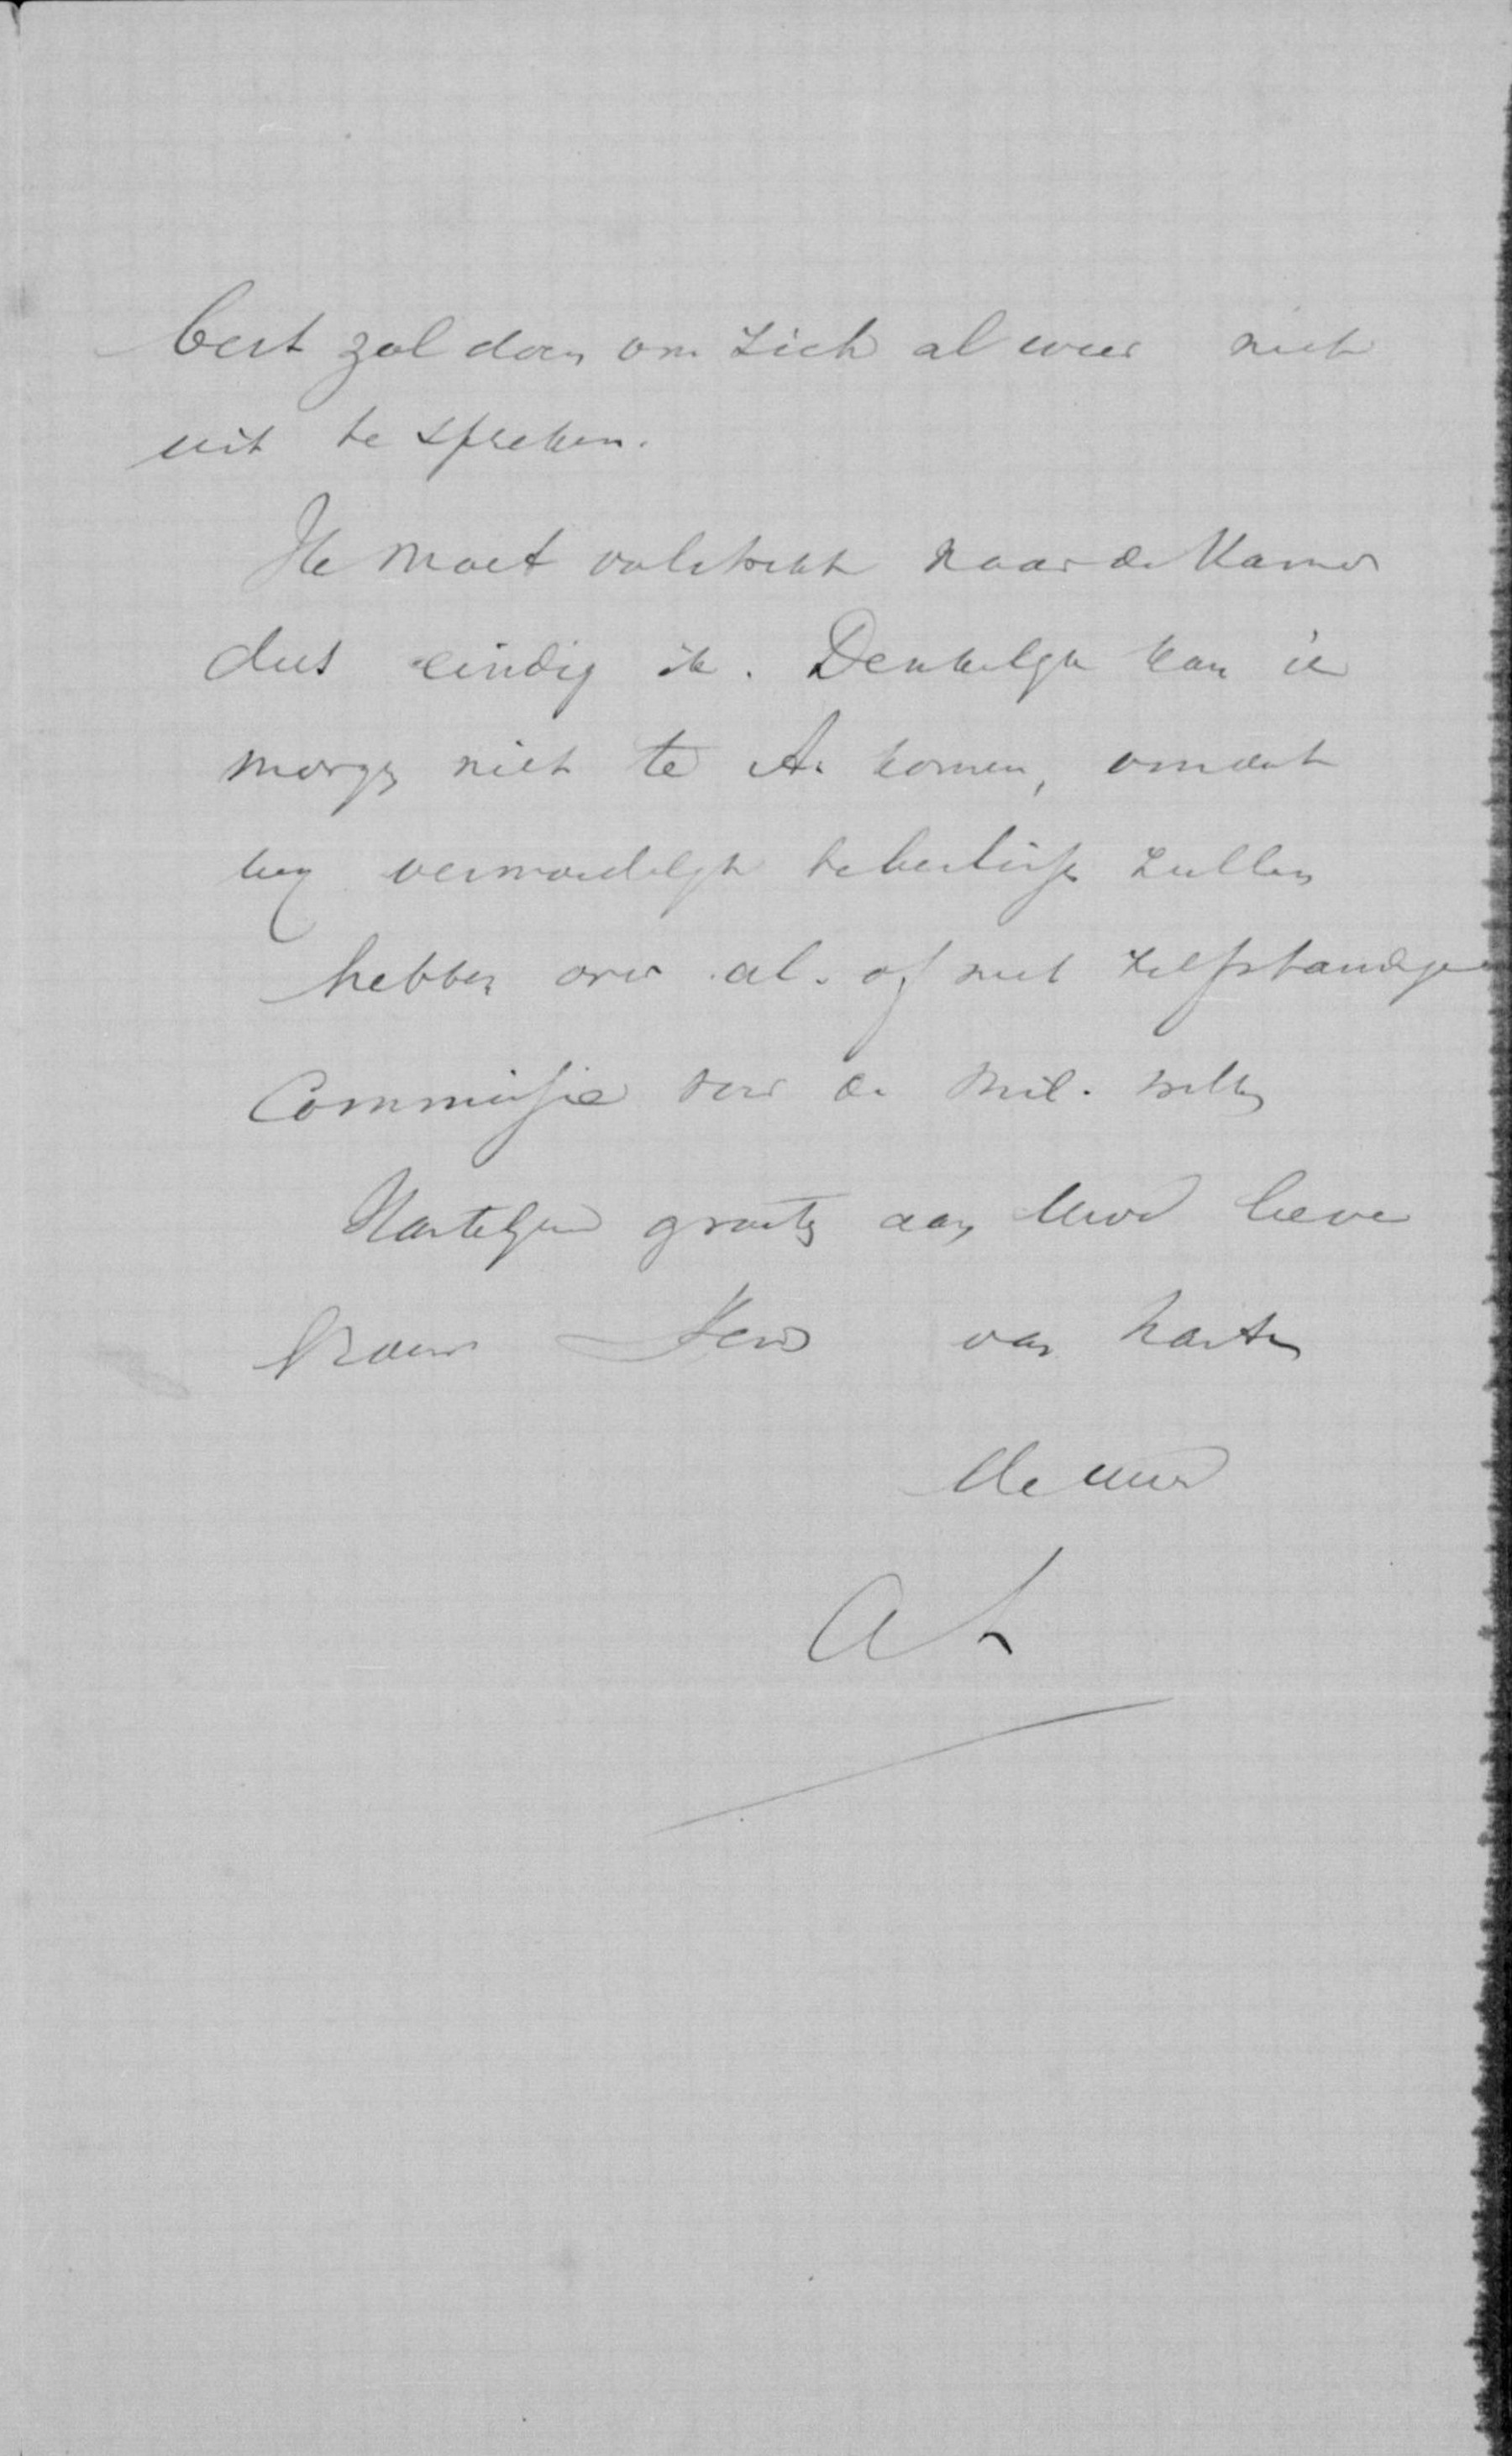 best zal doen om zich al weer niet
uit te spreken.
Ik moet volstrekt naar de Kamer
dus eindig ik. Denkelijk kan ik
morgen niet te A. komen, omdat
wij vermoedelijk te beslissen zullen
hebben over al- of niet zelfstandige
Commissie voor de Mil. wetten
Hartelijke groeten aan Uwe lieve
Vrouw van harte
de uwe
AK